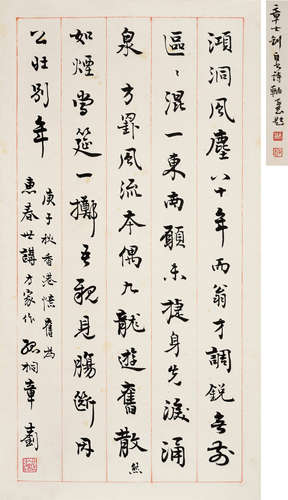 章士釗自書詩軸題
澒洞風塵八十年兩翁才調銳無前
區〻混一東南願未捷身先淚涌
泉方罫風流本偶九龍遊舊散然
如煙當筵一擲吾親見腸斷周
公旺別年
庚子秋香港懷舊為
惠春世講方家作孤桐章士釗